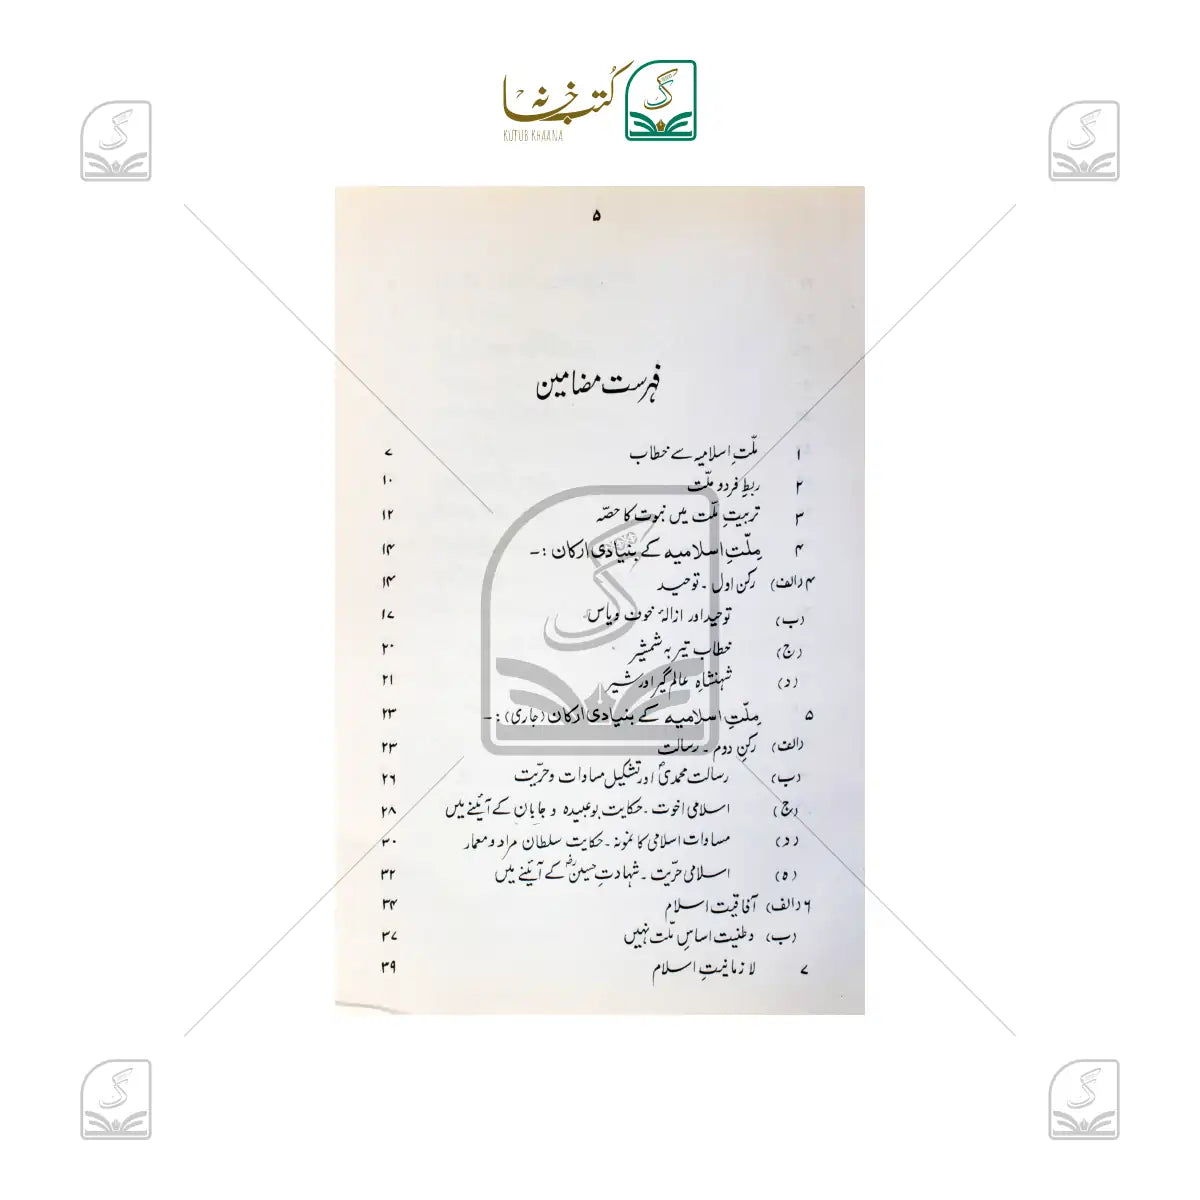 کتب خانہ
KUTUB KHAANA
۵
فہرست مضامین
۱ ملّتِ اسلامیہ سے خطاب ۷
۲ ربطِ فرد و ملّت ۱۰
۳ تربیتِ ملّت میں نبوت کا حصّہ ۱۲
۴ ملّتِ اسلامیہ کے بنیادی ارکان :۔ ۱۴
۴ (الف) رکن اول ۔ توحید ۱۴
(ب) توحید اور ازالۂ خوف و یاس ۱۷
(ج) خطاب تیر بہ شمشیر ۲۰
(د) شہنشاہِ عالم گیر اور شیر ۲۱
۵ ملّتِ اسلامیہ کے بنیادی ارکان (جاری) :۔ ۲۳
(الف) رکنِ دوم ۔ رسالت ۲۳
(ب) رسالت محمدیؐ اور تشکیل مساوات و حرّیت ۲۶
(ج) اسلامی اخوت ۔ حکایت بوعبیدہ و جابان کے آئینے میں ۲۸
(د) مساوات اسلامی کا نمونہ ۔ حکایت سلطان مراد و معمار ۳۰
(ہ) اسلامی حرّیت ۔ شہادتِ حسینؓ کے آئینے میں ۳۲
۶ (الف) آفاقیت اسلام ۳۴
(ب) وطنیت اساسِ ملّت نہیں ۳۷
۷ لازمانیتِ اسلام ۳۹